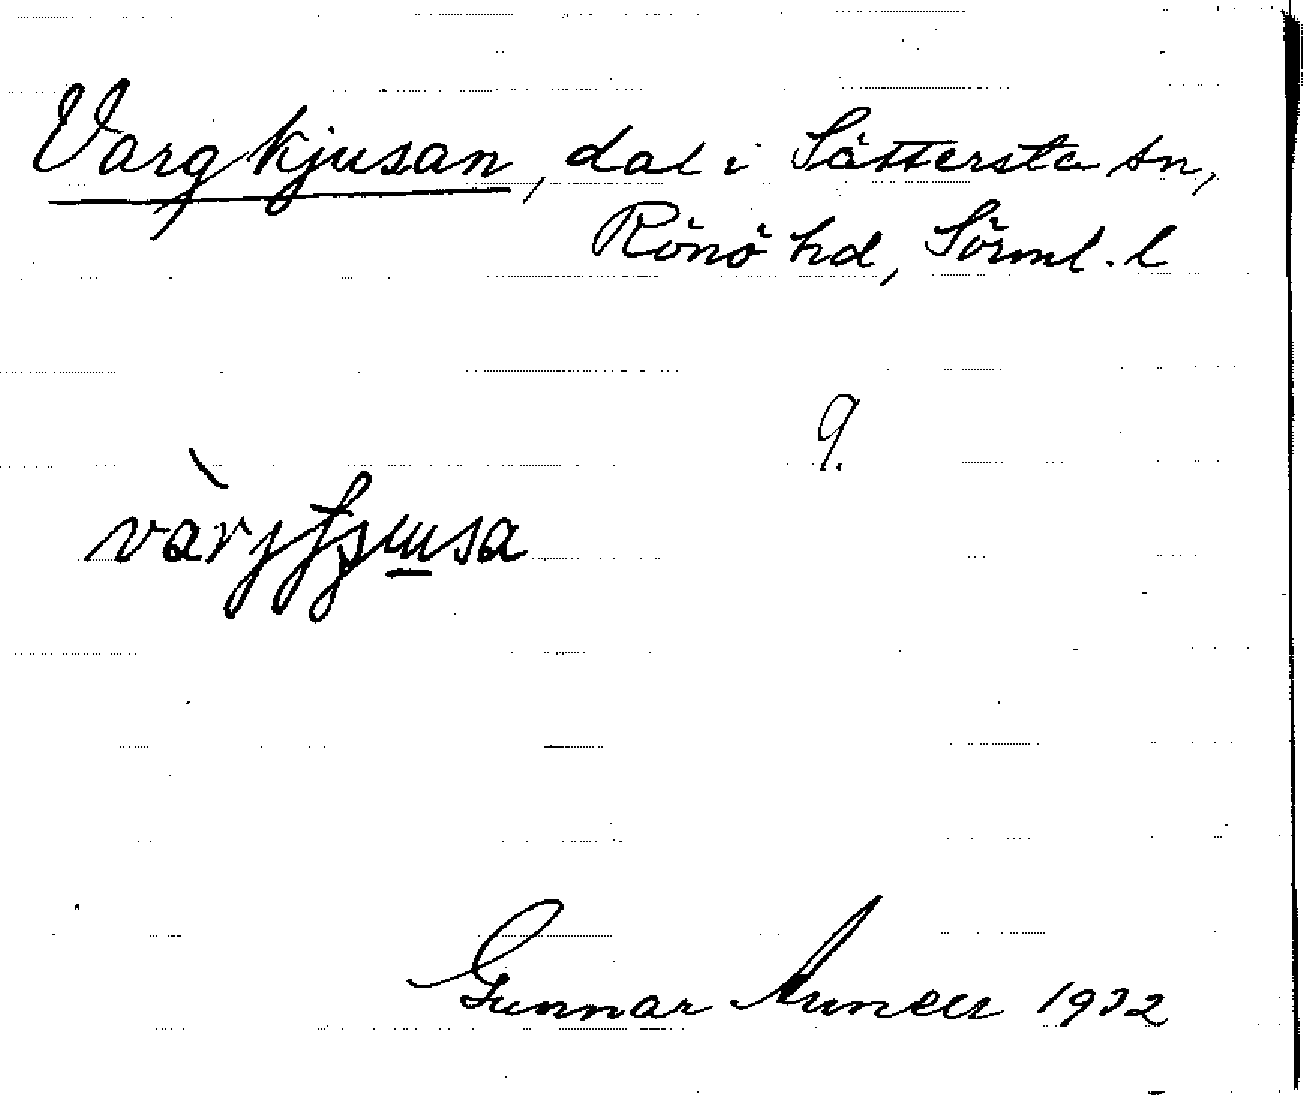 Vargkjusan, dal i Sättersta sn,
Rönö hd, Sörml. l
9.
Gunnar 1932